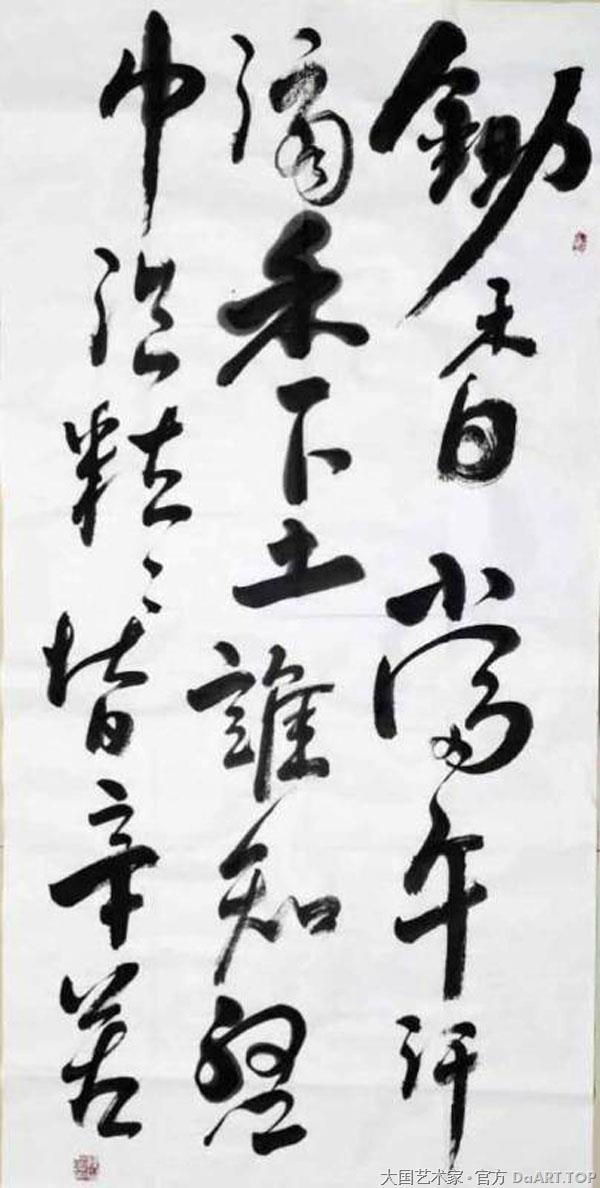 鋤禾日當午汗
滴禾下土誰知盤
中湌粒々皆辛苦
大国艺术家·官方 DaART.TOP